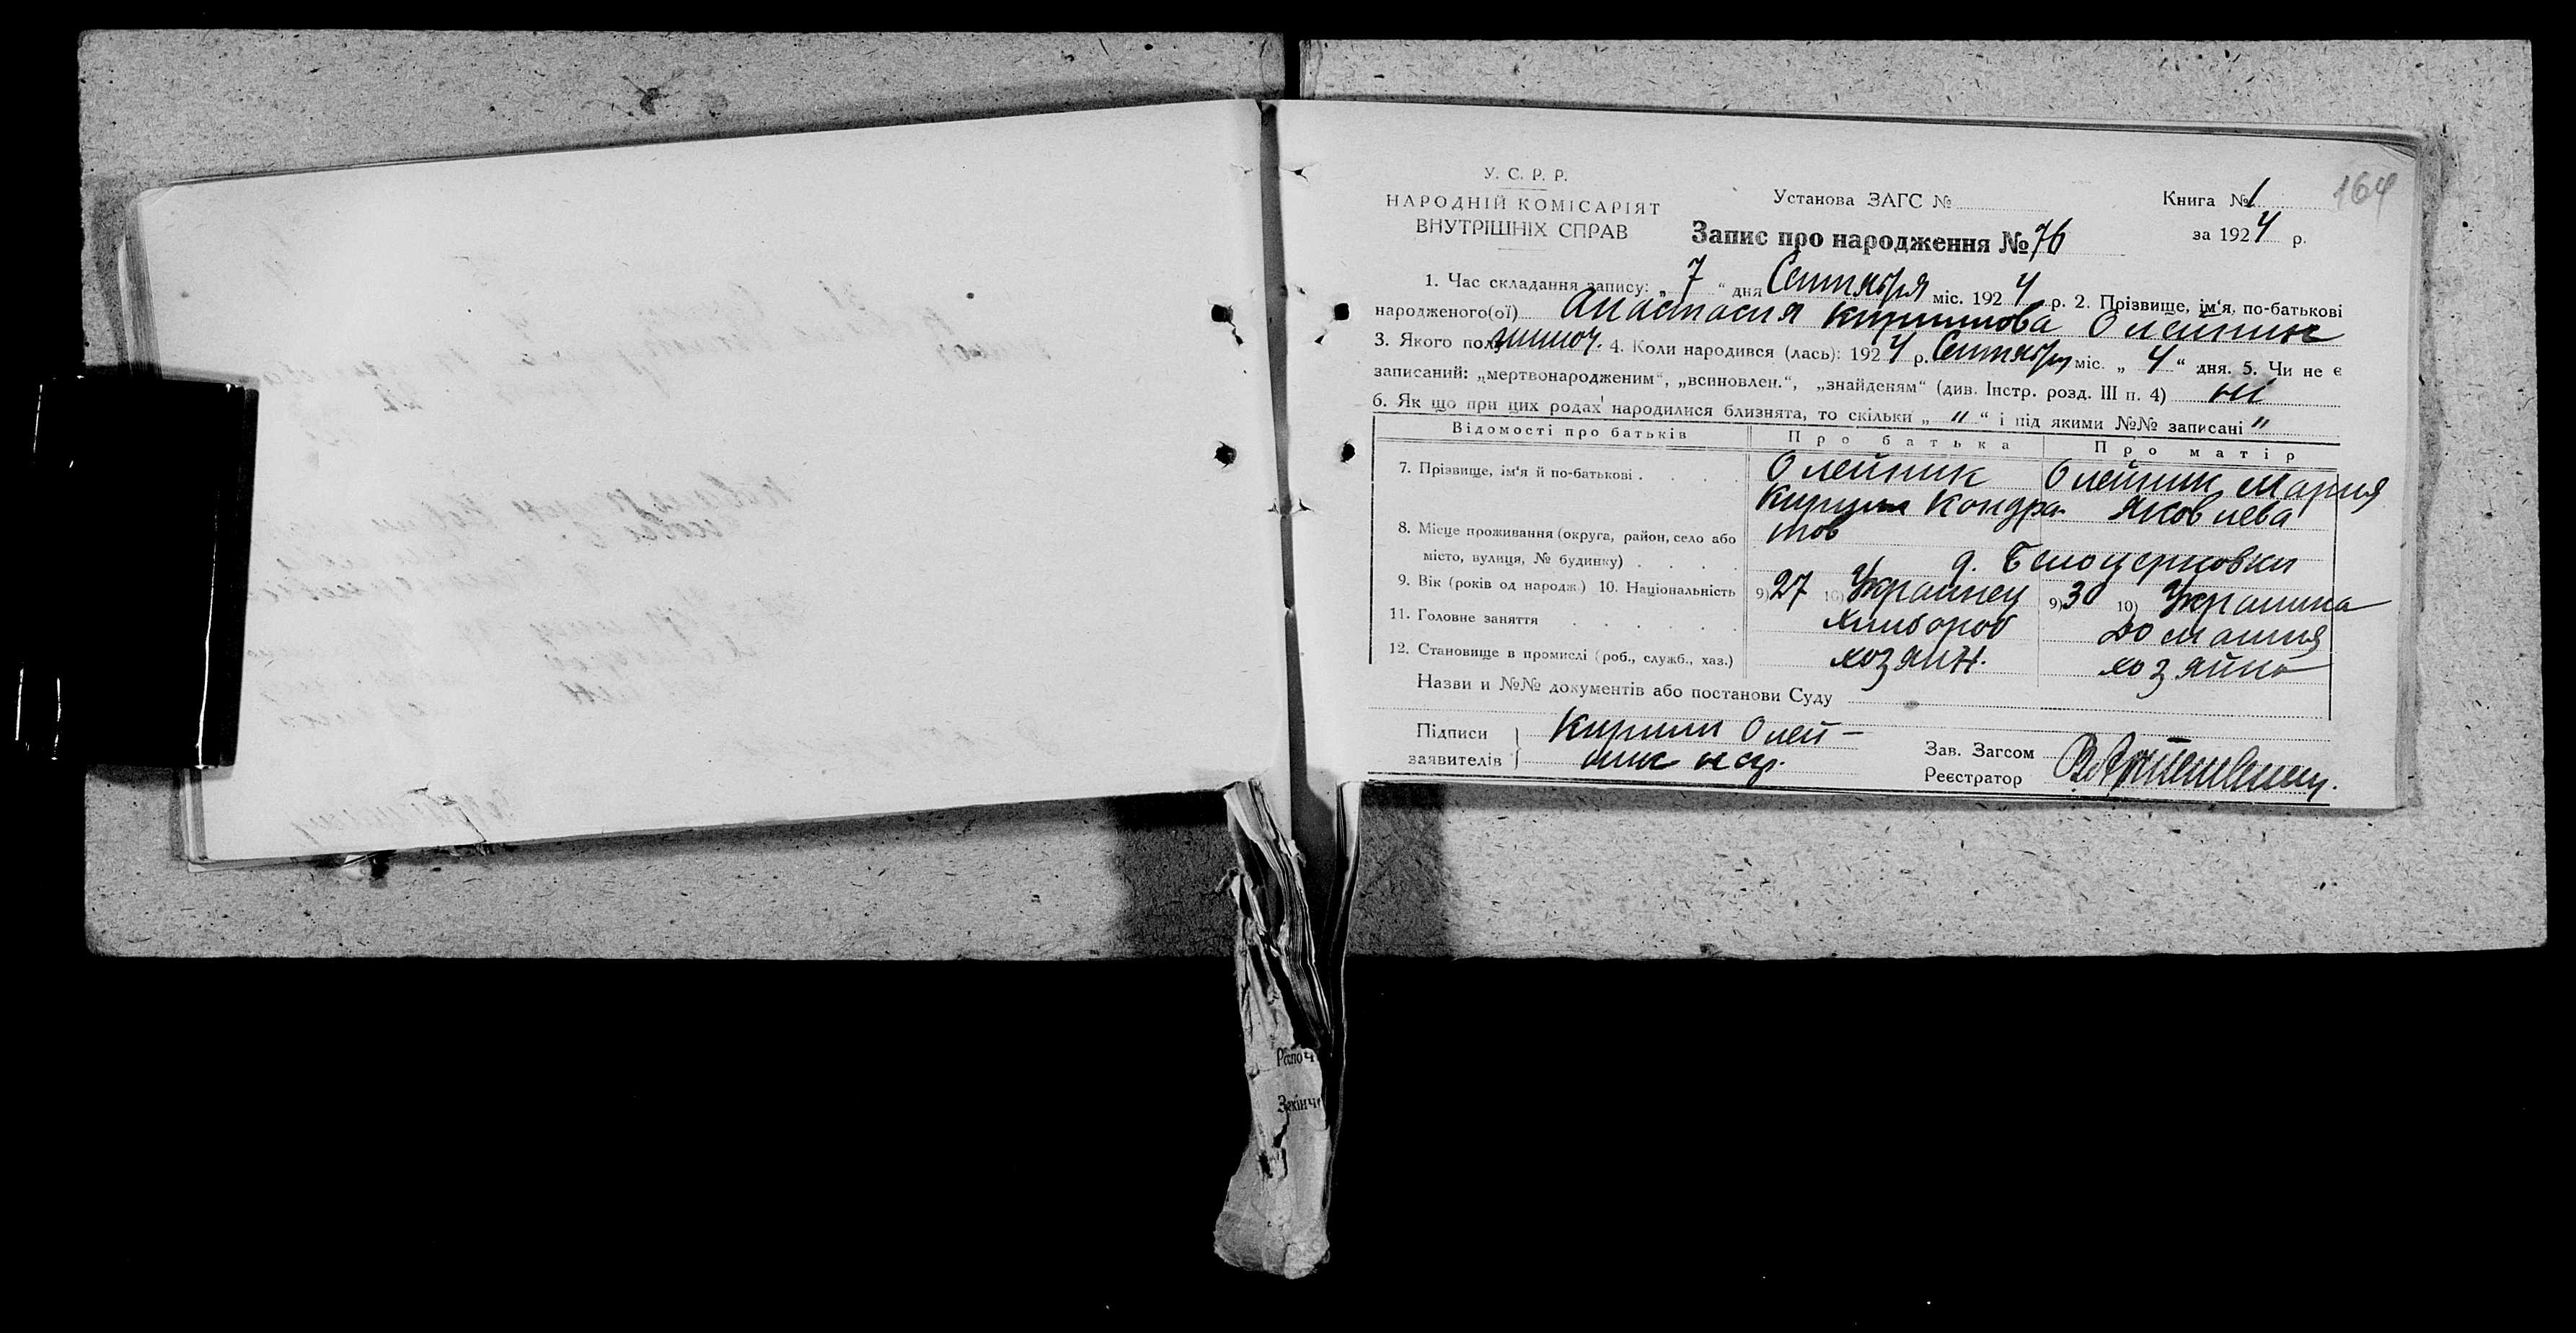 164
У. С. Р. Р.
НАРОДНІЙ КОМІСАРІЯТ
ВНУТРІШНІХ СПРАВ
Установа ЗАГС №
Книга № 1
за 1924 р.
Запис про народження № 76
1. Час складання запису: „ 7 “ дня Сентября міс. 1924 р. 2. Прізвище, ім‘я, по-батькові
народженого(ої) Анастасия Кирилова Олейник
3. Якого полу 4. Коли народився (лась): 1924 р. Сентября міс. „ 4 “ дня. 5. Чи не є
записаний: „мертвонародженим“, „всиновлен.“, „знайденям“ (див. Інстр. розд. III п. 4) не
6. Як що при цих родах народилися близнята, то скільки „ " “ і під якими №№ записані "
Відомості про батьків Про батька Про матір
7. Прізвище, ім‘я й по-батькові Олейник Олейник Мария
Кирилл Кондра- Яковлева
тов
8. Місце проживання (округа, район, село або
місто, вулиця, № будинку) д. Белоцерковки
9. Вік (років од народж.) 10. Національність 9) 27 10) Украинец 9) 30 10) Украинка
11. Головне заняття хлебороб Домашня
12. Становище в промислі (роб., служб., хаз.) хозяин. хозяйка
Назви и №№ документів або постанови Суду
Підписи
заявителів
Кирилл Олей-
ник
Зав. Загсом
Реєстратор
Розпоч
Закінч